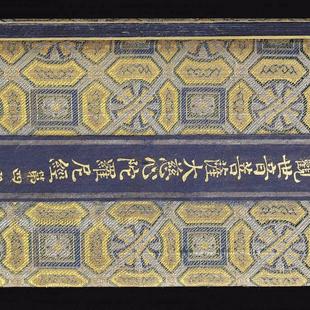 觀世音菩薩大慈心陀羅尼經 第四